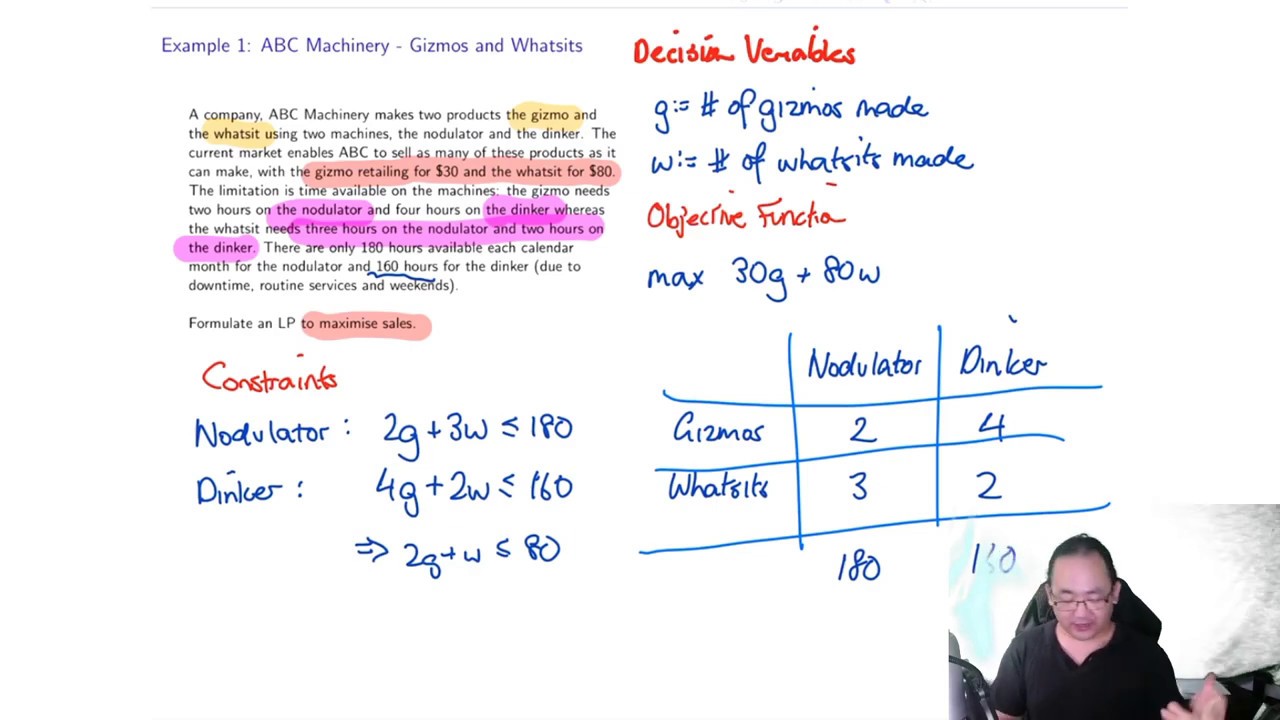 Example 1: ABC Machinery - Gizmos and Whatsits
A company, ABC Machinery makes two products the gizmo and
the whatsit using two machines, the nodulator and the dinker. The
current market enables ABC to sell as many of these products as it
can make, with the gizmo retailing for $30 and the whatsit for $80.
The limitation is time available on the machines: the gizmo needs
two hours on the nodulator and four hours on the dinker whereas
the whatsit needs three hours on the nodulator and two hours on
the dinker. There are only 180 hours available each calendar
month for the nodulator and 160 hours for the dinker (due to
downtime, routine services and weekends).
Formulate an LP to maximise sales.
Constraints
Nodulator: 2g + 3w ≤ 180
Dinker: 4g + 2w ≤ 160
⇒ 2g + w ≤ 80
Decision Variables
g := # of gizmos made
w := # of whatsits made
Objective Functio
max 30g + 80w
Nodulator Dinker
Gizmos 2 4
Whatsits 3 2
180 160